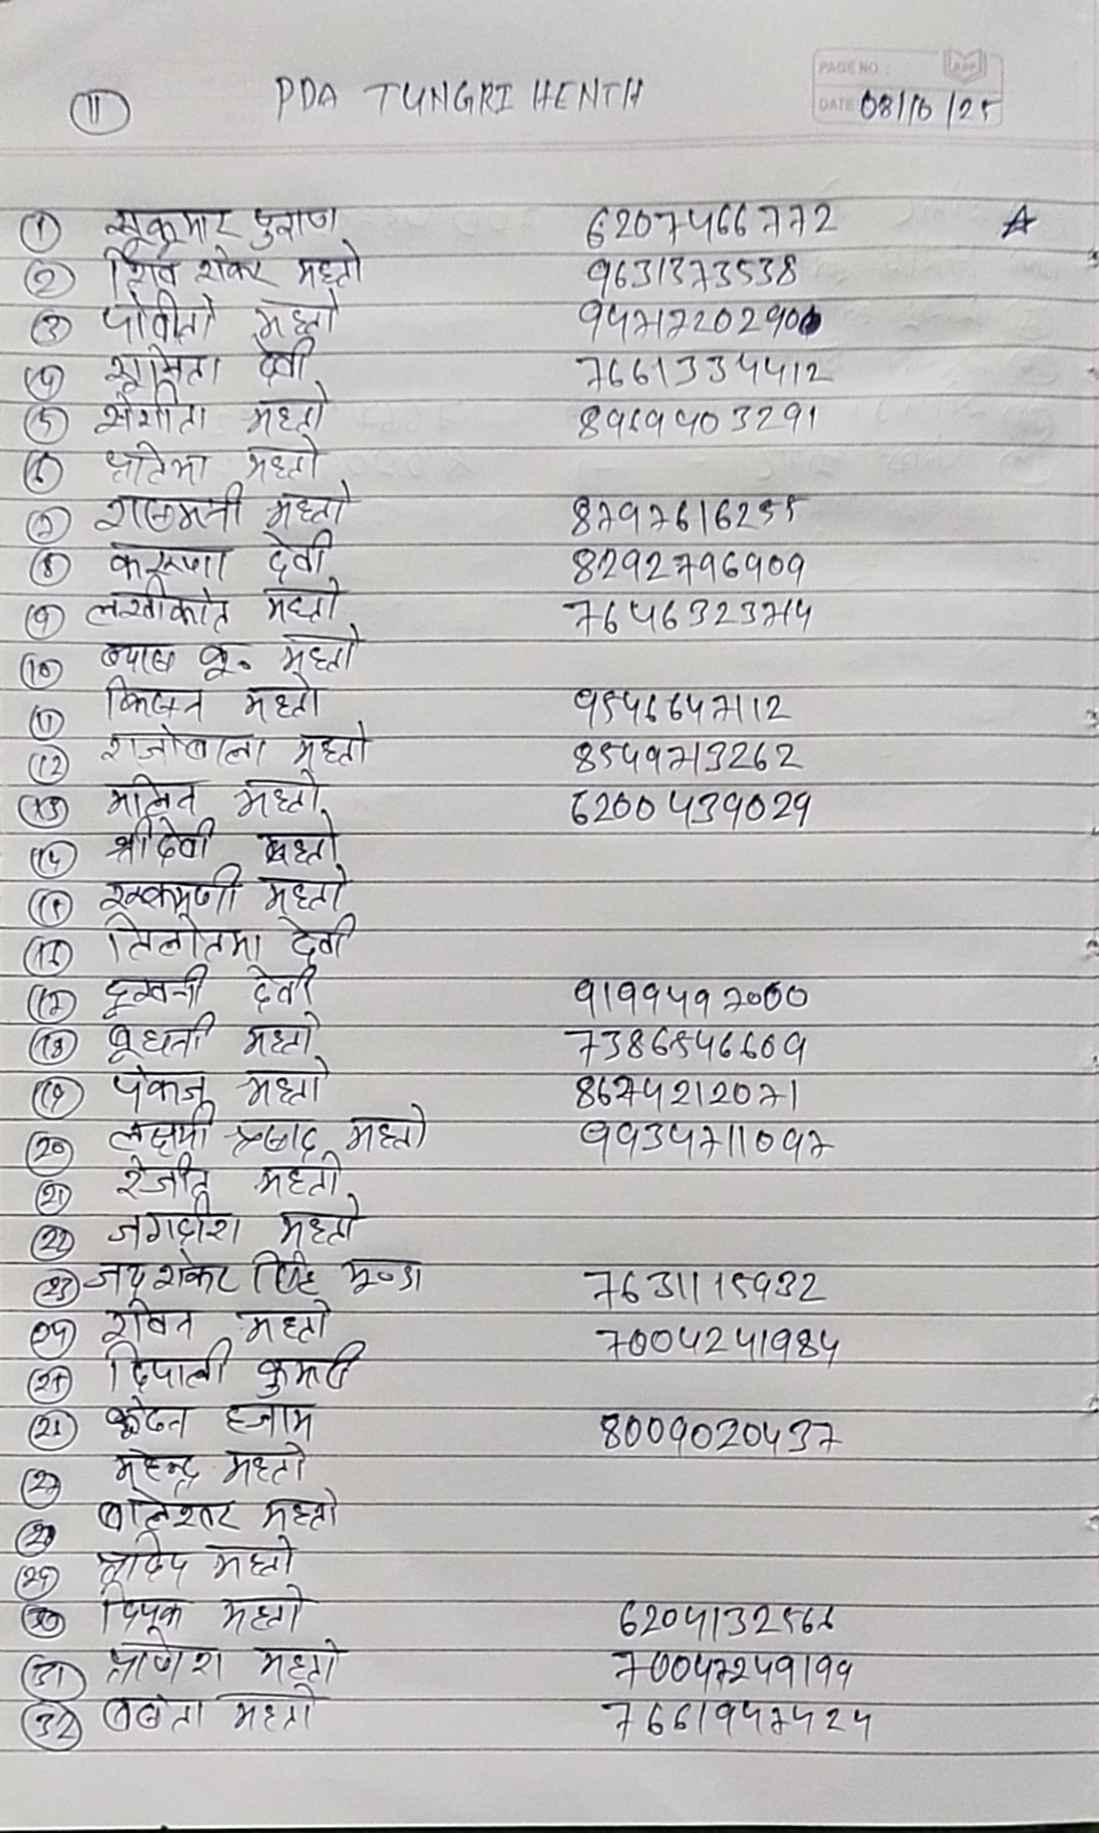 11 PDA TUNGRI HENTH
PAGE NO :
DATE 08/10/25
1 सुकुमार पुराण 6207466772
2 शिव शंकर महतो 9631373538
3 महतो
4 सुमिता देवी 7661334412
5 संगीता महतो
6 महतो
7 महतो 8797616255
8 करूणा देवी 8292796909
9 लखीकांत महतो 7646323714
10 कु. महतो
11 किसन महतो 9546647112
12 महतो 8549713262
13 महतो 6200439029
14 श्रीदेवी महतो
15 महतो
16 तिलोतमा देवी
17 दुखनी देवी 9199497000
18 बुधनी महतो 7386846609
19 पंकज महतो 8674212071
20 लक्ष्मी प्रसाद महतो 9934711097
21 रंजीत महतो
22 जगदीश महतो
23 जय शंकर सिंह मुण्डा 7631115932
24 रबिन महतो 7004241984
25 दिपाली कुमारी
26 हजाम 8009020437
27 महेन्द्र महतो
28 बालेश्वर महतो
29 महतो
30 दिपक महतो 6204132566
31 महतो 70047249199
32 बबिता महतो 7661947424